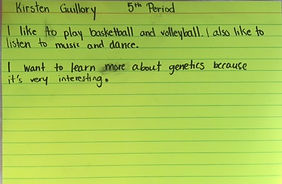 Kirsten Guillory 5th Period
I like to play basketball and volleyball. I also like to
listen to music and dance.
I want to learn more about genetics because
it's very interesting.